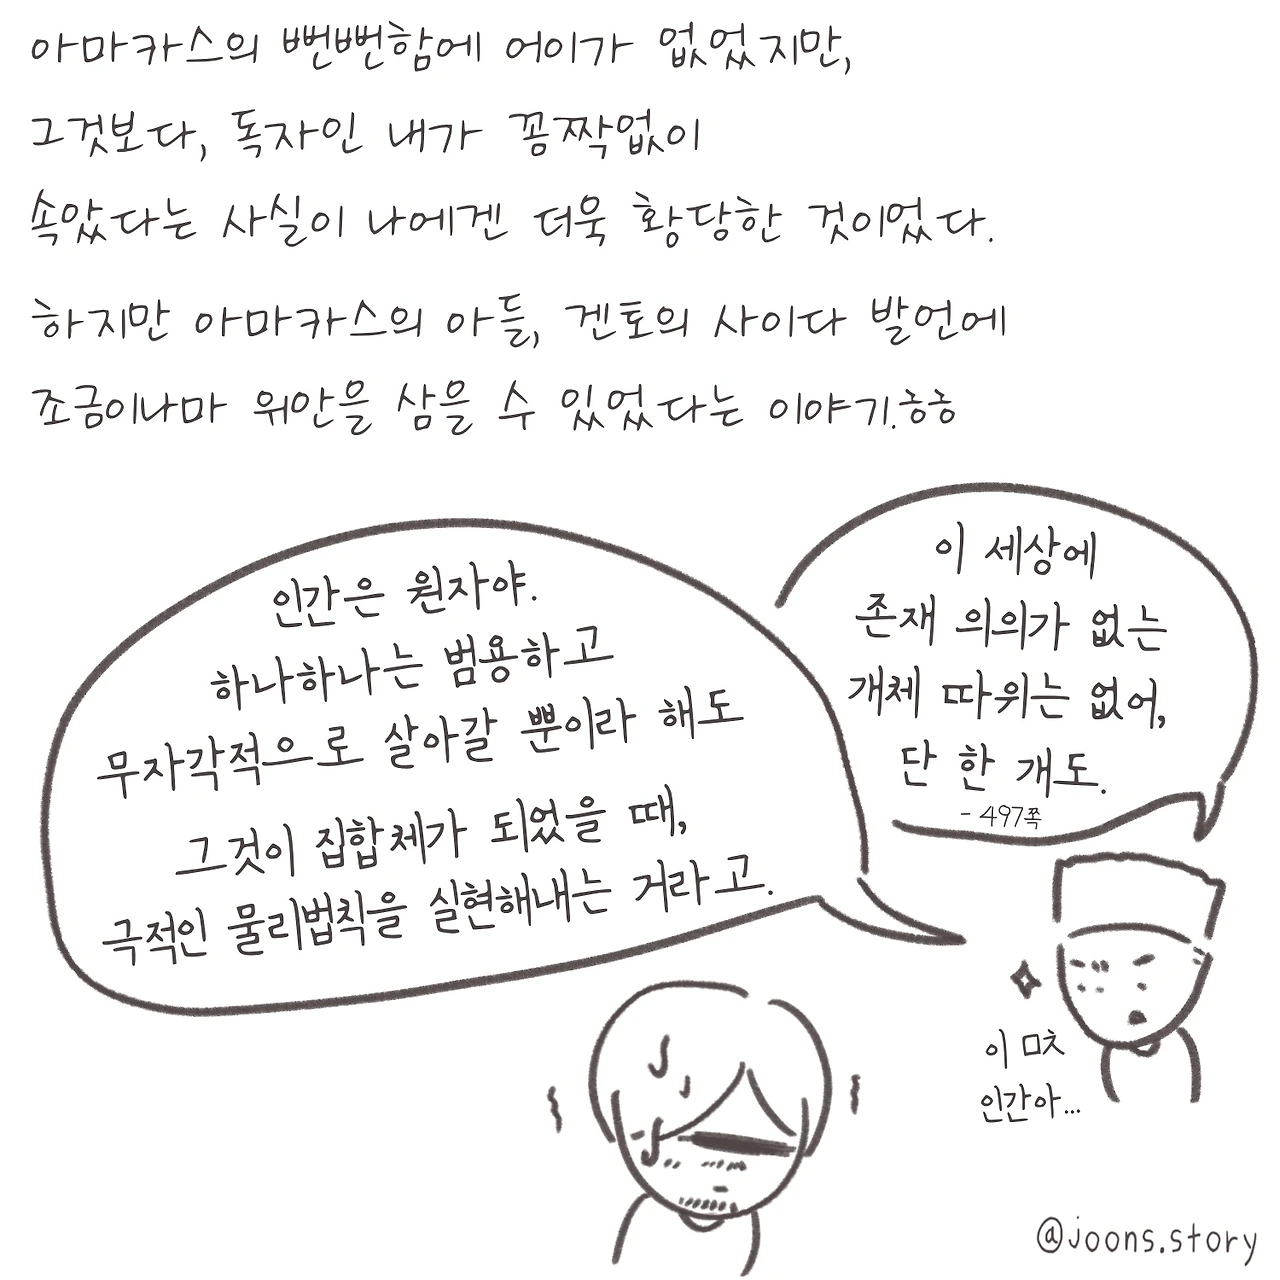 아마카스의 뻔뻔함에 어이가 없었지만,
그것보다, 독자인 내가 꼼짝없이
속았다는 사실이 나에겐 더욱 황당한 것이었다.
하지만 아마카스의 아들, 겐토의 사이다 발언에
조금이나마 위안을 삼을 수 있었다는 이야기.ㅎㅎ
인간은 원자야.
하나하나는 범용하고
무자각적으로 살아갈 뿐이라 해도
그것이 집합체가 되었을 때,
극적인 물리법칙을 실현해내는 거라고.
이 세상에
존재 의의가 없는
개체 따위는 없어,
단 한 개도.
- 497쪽
이 ㅁㅊ
인간아...
@joons.story